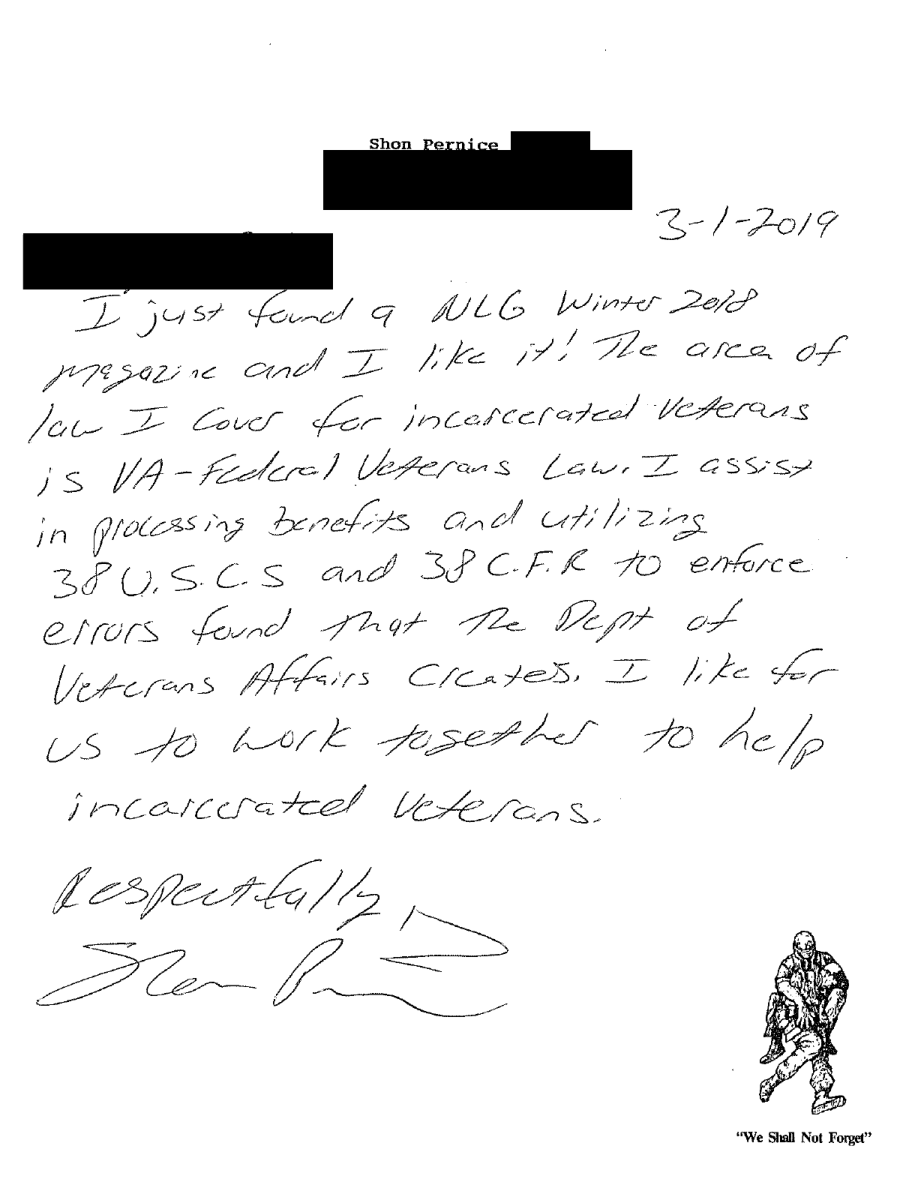 Shon Pernice
3-1-2019
I just found a NLG Winter 2018
magazine and I like it! The area of
law I cover for incarcerated Veterans
is VA-Federal Veterans Law. I assist
in processing benefits and utilizing
38 U.S.C.S and 38 C.F.R to enforce
errors found that the Dept of
Veterans Affairs creates. I like for
us to work together to help
incarcerated Veterans.
Respectfully,
Shon P
"We Shall Not Forget"